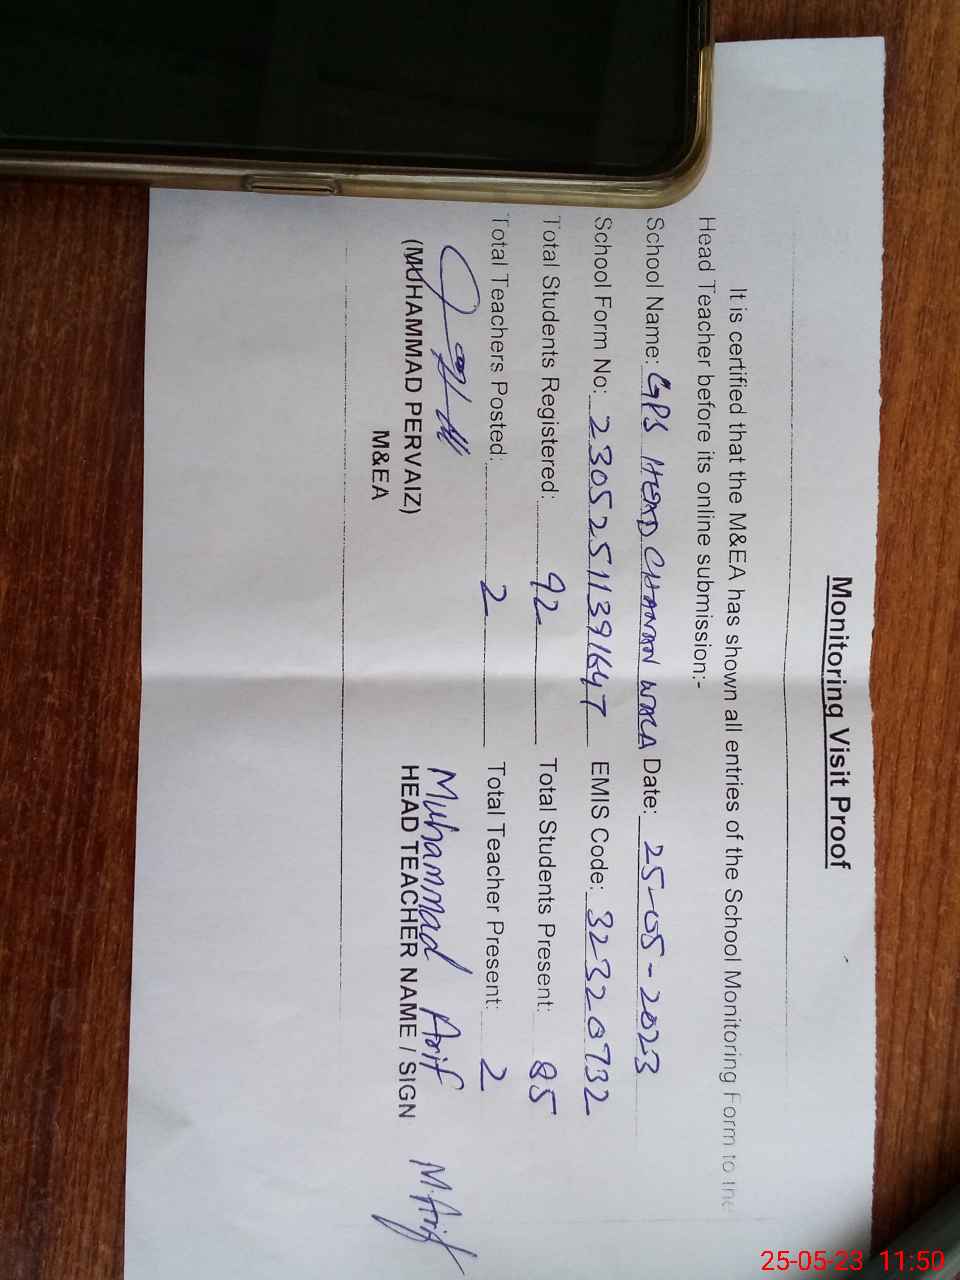 Monitoring Visit Proof
It is certified that the M&EA has shown all entries of the School Monitoring Form to the
Head Teacher before its online submission:-
School Name: GPS HEAD CHANAN WALA Date: 25-05-2023
School Form No: 23052511391647 EMIS Code: 32320732
Total Students Registered: 92 Total Students Present: 85
Total Teachers Posted: 2 Total Teacher Present: 2
Muhammad Arif M.Arif
(MUHAMMAD PERVAIZ) HEAD TEACHER NAME / SIGN
M&EA
25-05-23 11:50